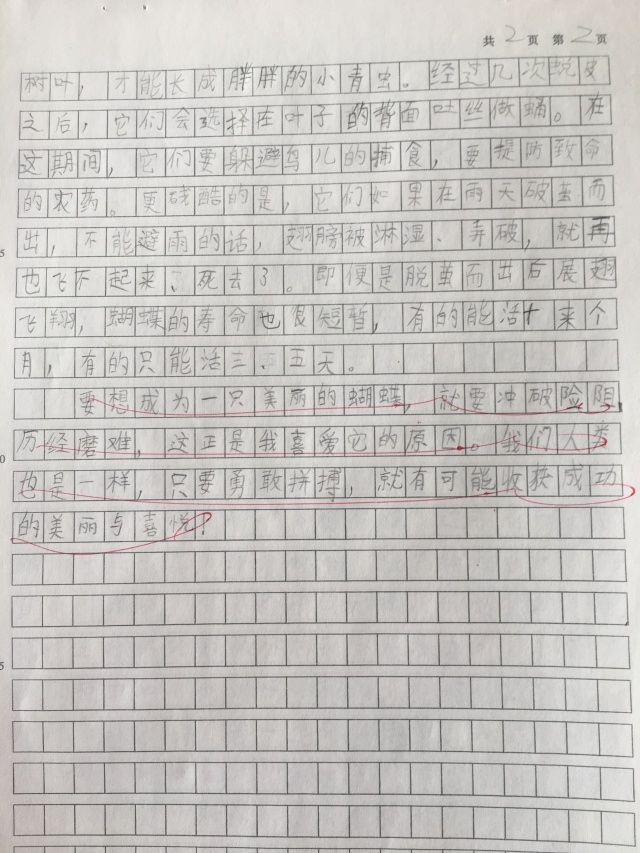 共2页 第2页
树叶，才能长成胖胖的小青虫。经过几次蜕皮
之后，它们会选择在叶子的背面吐丝做蛹。在
这期间，它们要躲避鸟儿的捕食，要提防致命
的农药。更残酷的是，它们如果在雨天破茧而
出，不能避雨的话，翅膀被淋湿、弄破，就再
5
也飞不起来、死去了。即便是脱茧而出后展翅
飞翔，蝴蝶的寿命也很短暂，有的能活十来个
月，有的只能活三、五天。
要想成为一只美丽的蝴蝶，就要冲破险阻，
历经磨难，这正是我喜爱它的原因。我们人类
0
也是一样，只要勇敢拼搏，就有可能收获成功
的美丽与喜悦。
5